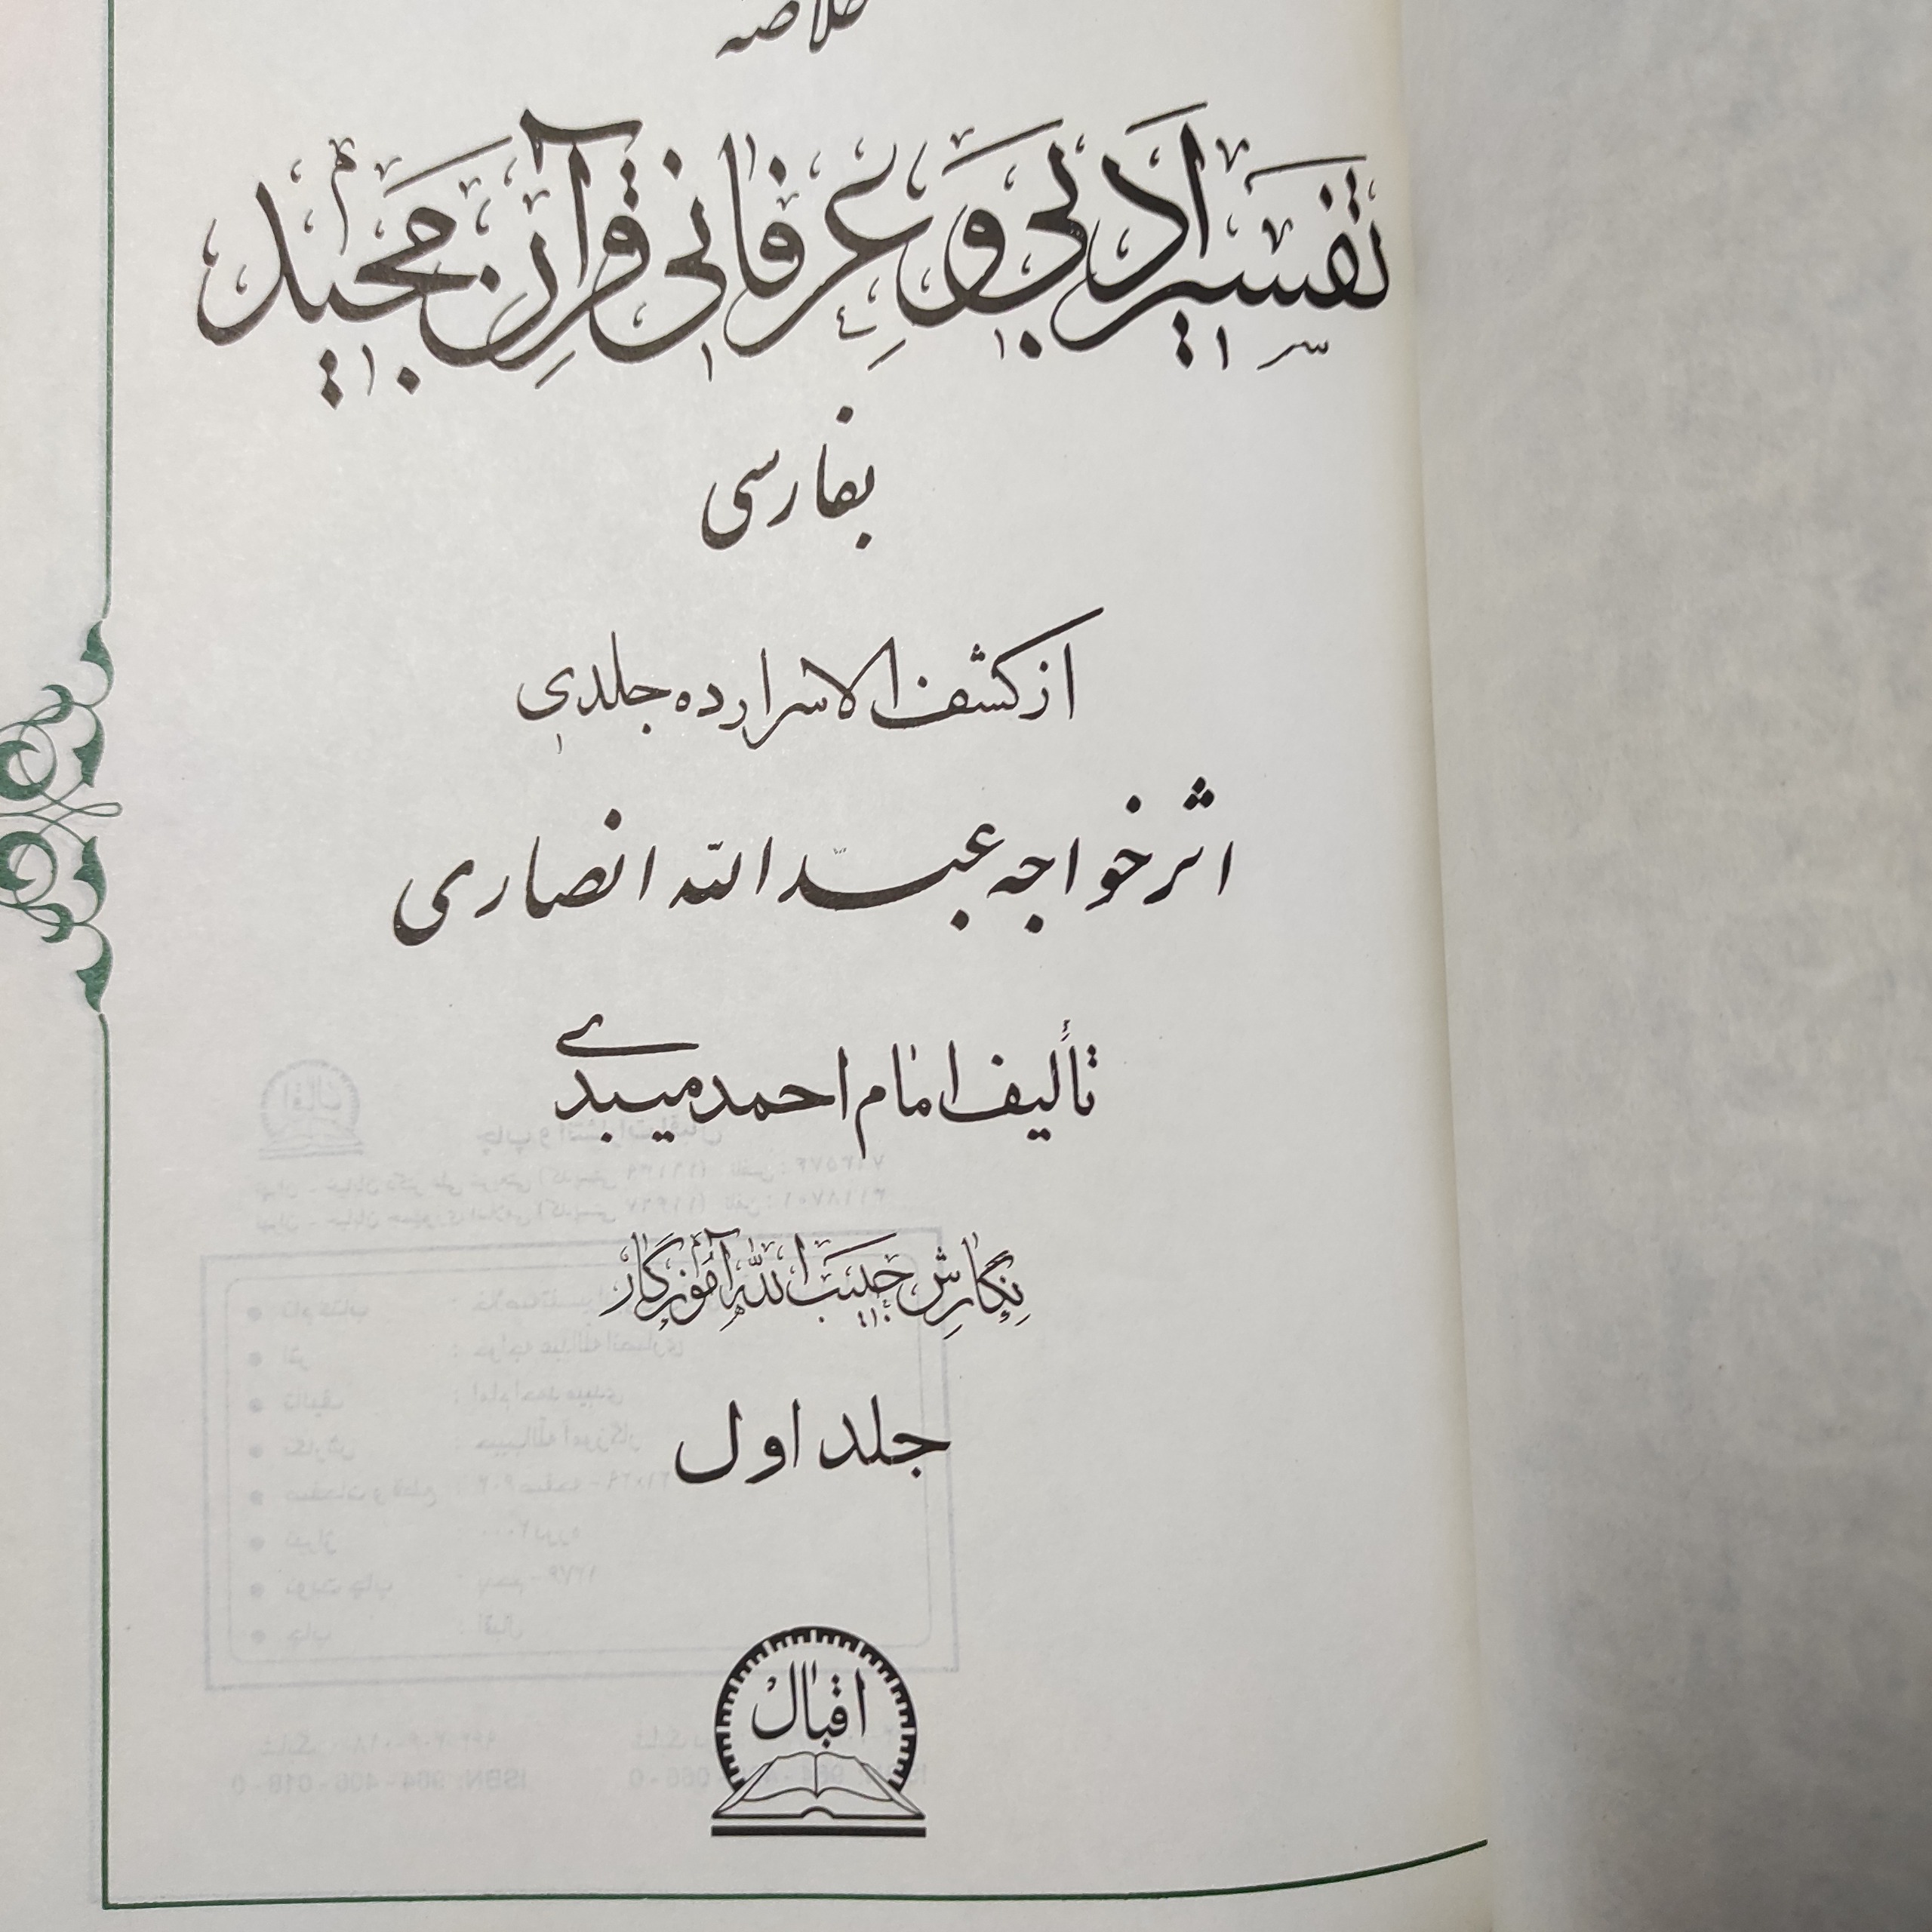 خلاصه
تفسیر ادبی و عرفانی قرآن مجید
بفارسی
از کشف الاسرار ده جلدی
اثر خواجه عبدالله انصاری
تألیف امام احمد میبدی
نگارش حبیب الله آموزگار
جلد اول
اقبال